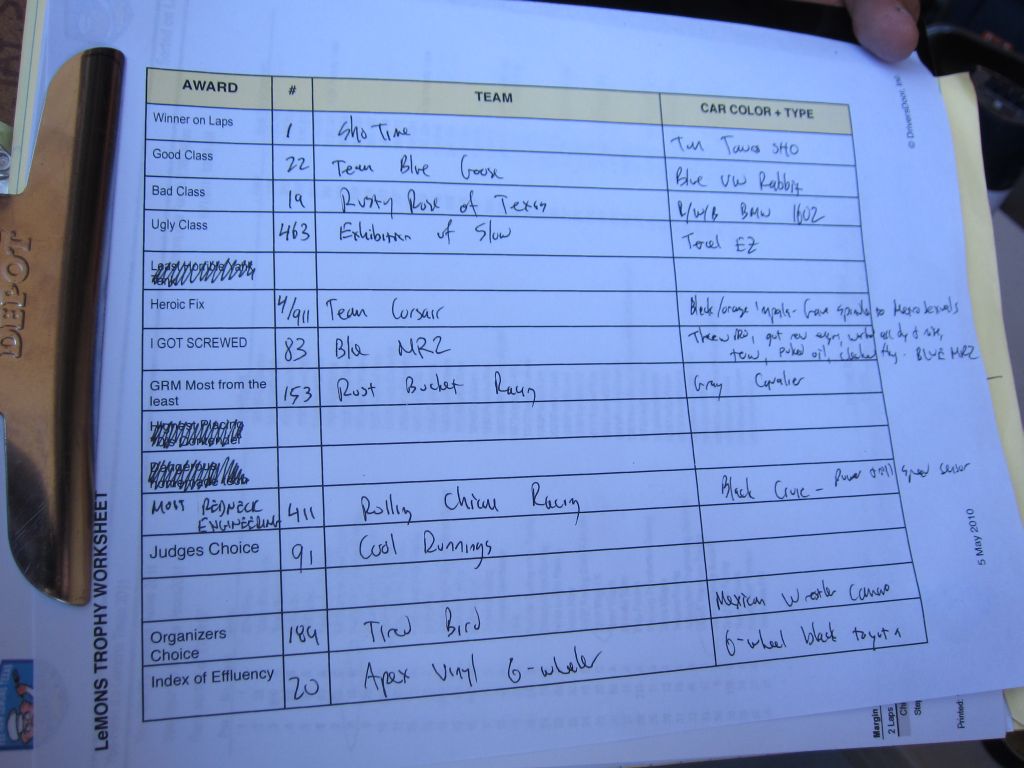 AWARD # TEAM CAR COLOR + TYPE
Winner on Laps 1 Sho Time Tan SHO
Good Class 22 Team Blue Goose Blue VW Rabbit
Bad Class 19 Rusty Rose of Texas R/W/B BMW 1602
Ugly Class 463 Exhibition of Slow Tercel EZ
Heroic Fix 4/911 Team Corsair Black/orange Impala - to Metro
I GOT SCREWED 83 Blue MR2 Threw rod, got new engn,
tow, puked oil, - BLUE MR2
GRM Most from the
least 153 Rust Bucket Racing Gray Cavalier
Highest Placing
Dangerous
MOST REDNECK
ENGINEERING 411 Rolling Chicane Racing Black Civic - Power speed sensor
Judges Choice 91 Cool Runnings
Organizers
Choice 189 Tired Bird Mexican Wrestler Camaro
Index of Effluency 20 Apex Vinyl 6-wheeler 6-wheel black toyota
LeMONS TROPHY WORKSHEET
© DriversDoor, Inc
5 May 2010
DEPOT
Margin
2 Laps
Printed: